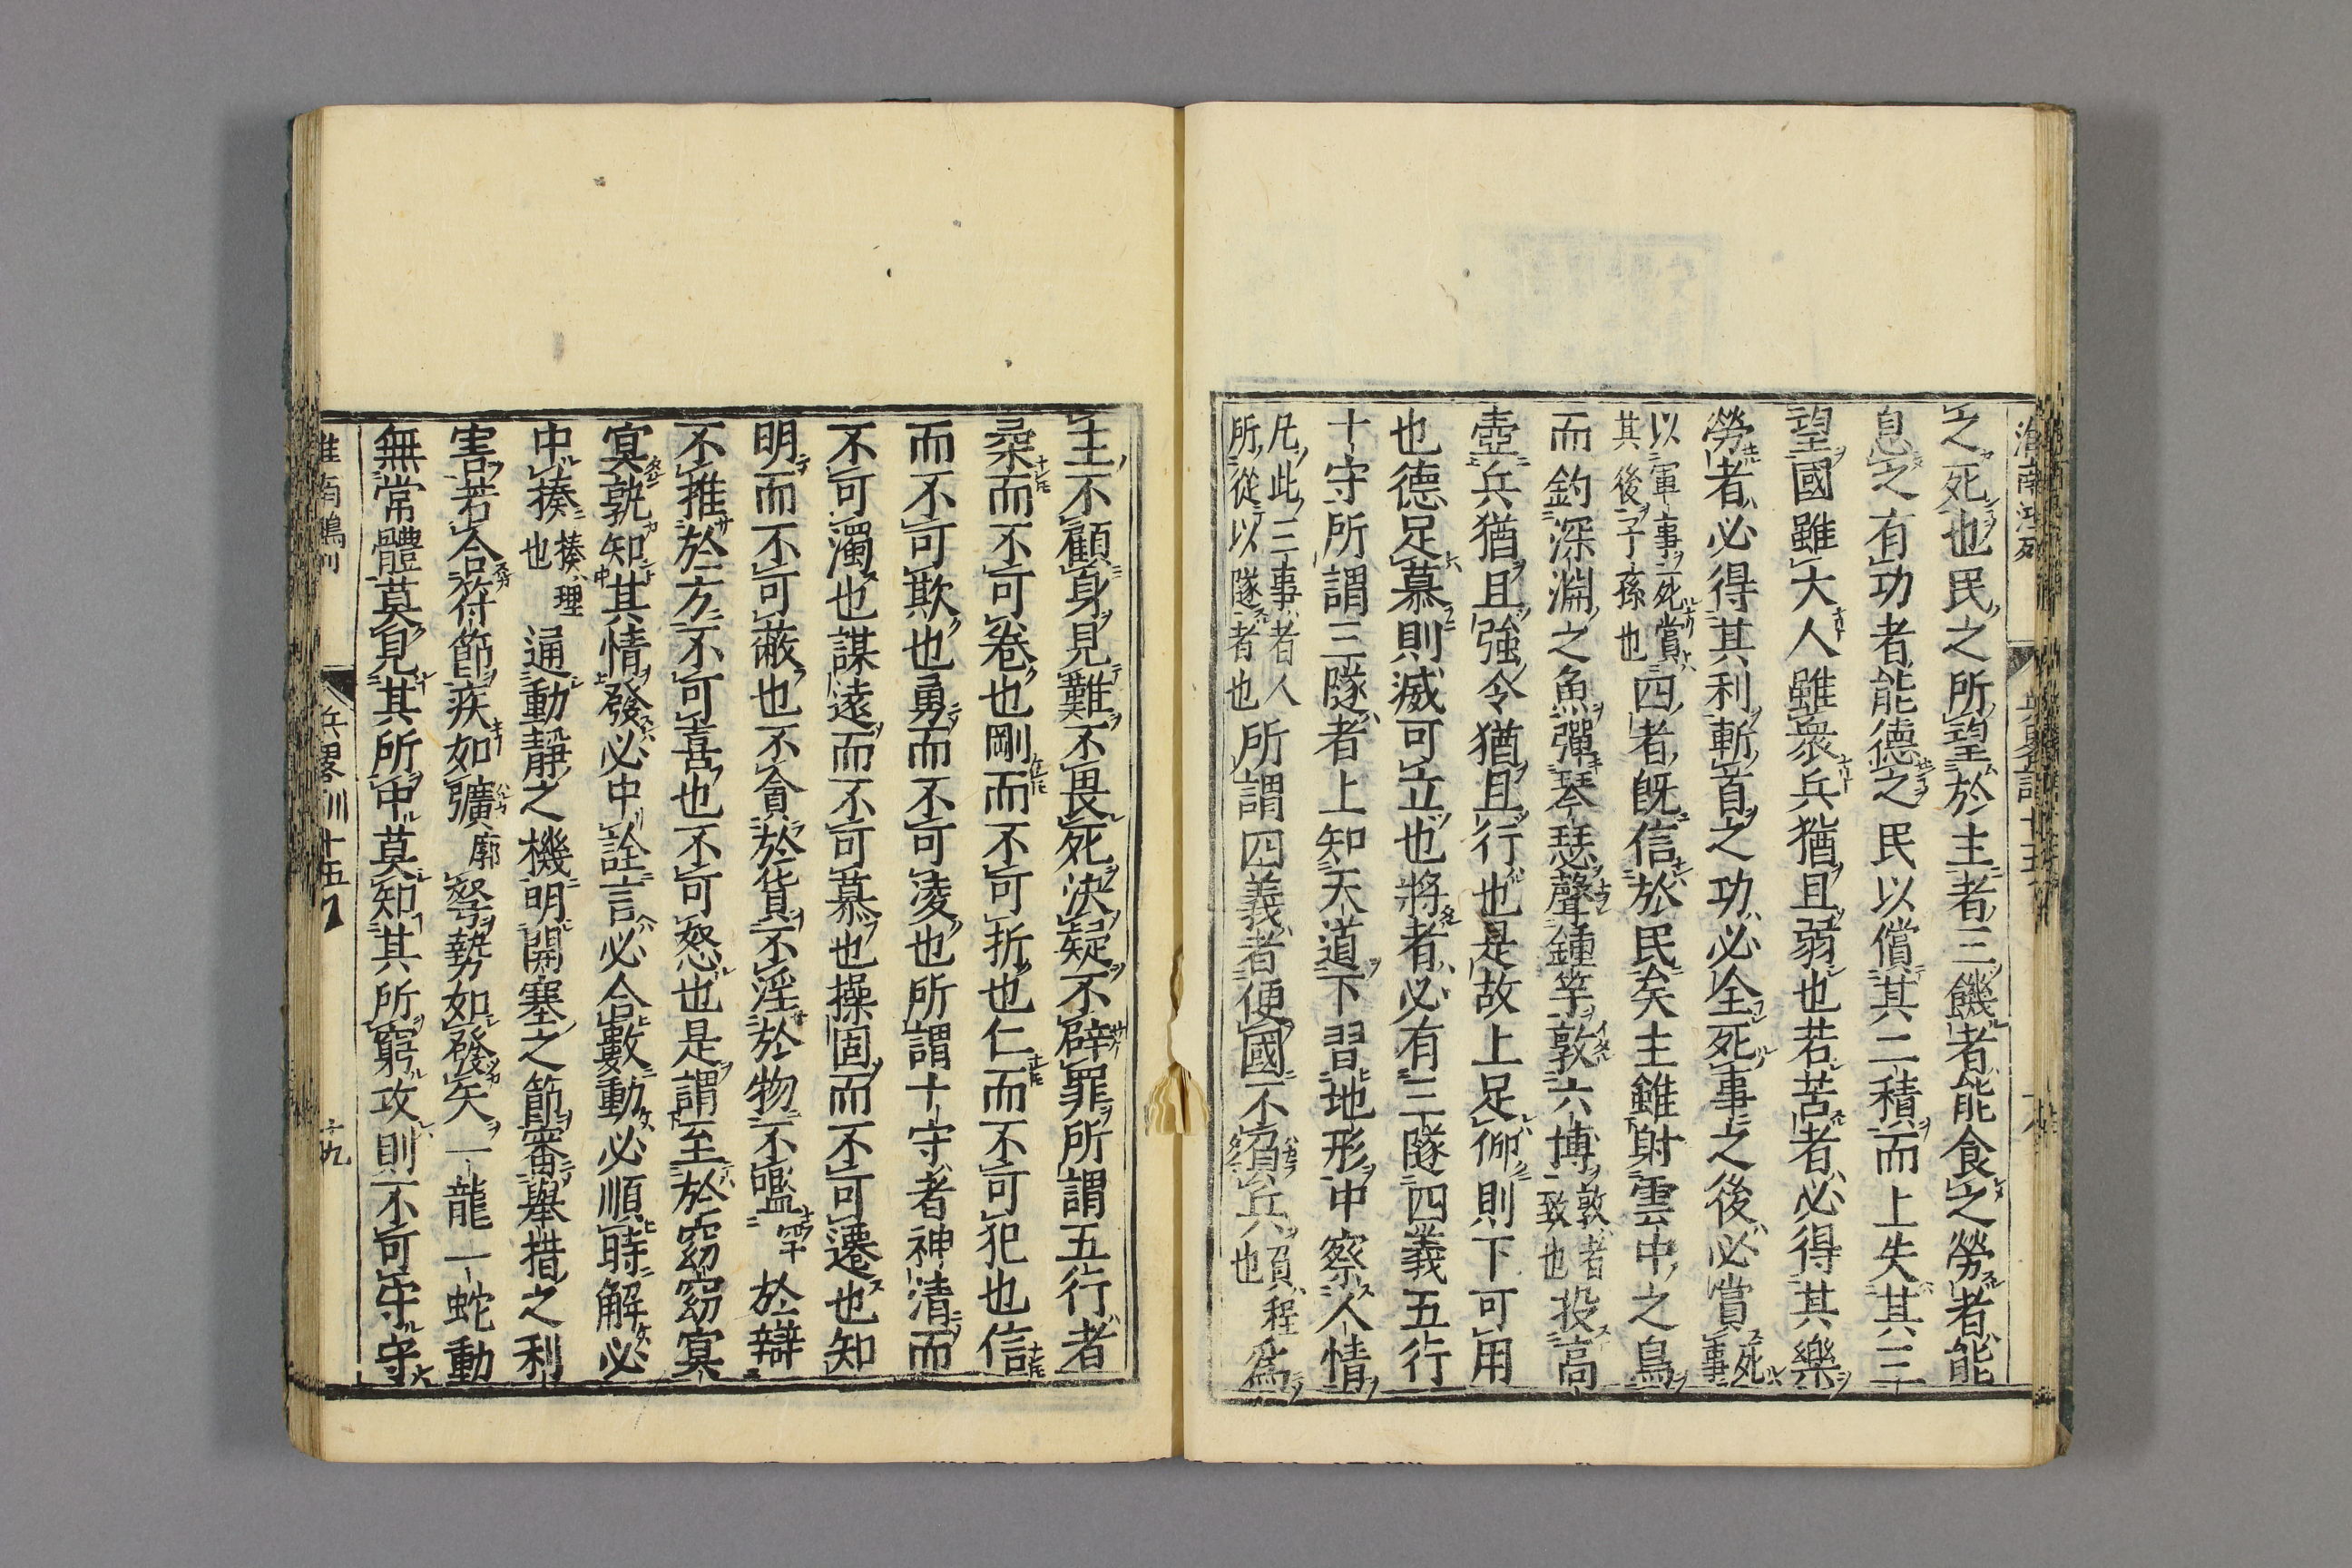 之死也民之所望於主者三饑者能食之勞者能
息之有功者能德之民以償其二積而上失其三
望國雖大人雖衆兵猶且弱也若苦者必得其樂
勞者必得其利斬首之功必全死事之後必賞死事
以軍事死賞其後子孫也四者既信於民矣主雖射雲中之鳥
而釣深淵之魚彈琴瑟聲鍾竽敦六博敦者致也投高
壺兵猶且強令猶且行也是故上足仰則下可用
也德足慕則威可立也將者必有三隧四義五行
十守所謂三隧者上知天道下習地形中察人情
凡此三事者人所從以隧者也所謂四義者便國不兵程也爲
主不顧身見難不畏死決疑不辟罪所謂五行者
柔而不可卷也剛而不可折也仁而不可犯也信
而不可欺也勇而不可凌也所謂十守者神清而
不可濁也謀遠而不可慕也操固而不可遷也知
明而不可蔽也不貪於貨不淫於物不嚂於辯
不推於方不可喜也不可怒也是謂至於窈窈寞
冥孰知其情發必中詮言必合數動必順時解必
中揍揍理也通動靜之機明開塞之節審舉措之利
害若合符節疾如彍廓弩勢如發矢一龍一蛇動
無常體莫見其所中莫知其所窮攻則不可守守
兵畧訓十五 十九